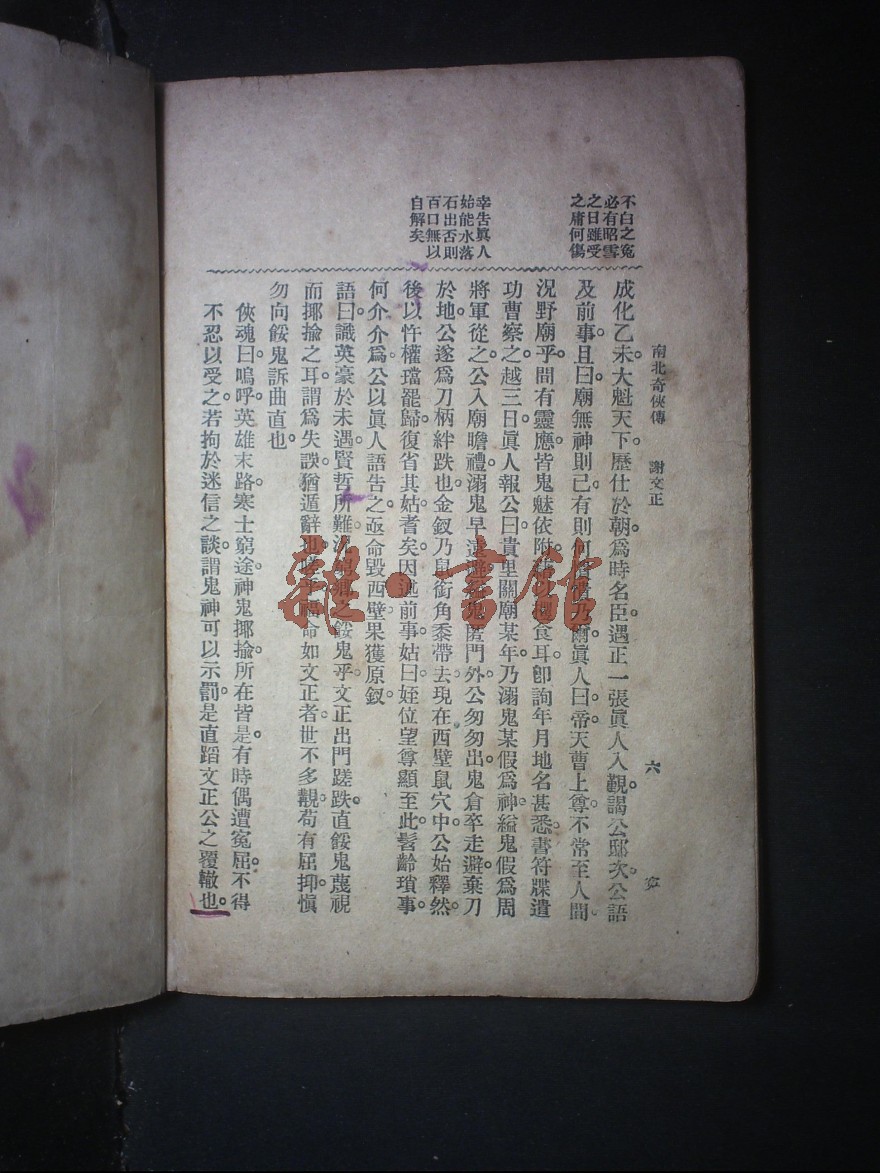 南北奇俠傳 謝文正 六
不白之冤
必有昭雪
之日雖受
之庸何傷
幸告眞人
始能水落
石出否則
百口無以
自解矣
成化乙未。大魁天下。歷仕於朝。爲時名臣。遇正一張眞人入觀。謁公邸次。公語
及前事。且曰。廟無神則已。有則何
乃爾。眞人曰。帝天曹上尊。不常至人間。
況野廟乎。間有靈應。皆鬼魅依附
食耳。卽詢年月地名甚悉。書符牒遣
功曹察之。越三日。眞人報公曰。貴里關廟。某年乃溺鬼某假爲神。縊鬼假爲周
將軍從之。公入廟瞻禮。溺鬼早
鬼匿門外。公匆匆出。鬼倉卒走避。棄刀
於地。公遂爲刀柄絆跌也。金釵乃鼠銜角黍帶去。現在西壁鼠穴中。公始釋然。
後以忤權璫罷歸。復省其姑。耆矣。因
前事。姑曰。姪位望尊顯至此。髫齡瑣事。
何介介爲。公以眞人語告之。亟命毀西壁。果獲原釵。
語曰。識英豪於未遇。賢哲所難。
之餒鬼乎。文正出門蹉跌。直餒鬼蔑視
而揶揄之耳。謂爲失誤。猶遁辭也。
命如文正者。世不多觀。苟有屈抑。愼
勿向餒鬼訴曲直也。
俠魂曰。嗚呼。英雄末路。寒士窮途。神鬼揶揄。所在皆是。有時偶遭冤屈。不得
不忍以受之。若拘於迷信之談。謂鬼神可以示罰。是直蹈文正公之覆轍也。
雜·书馆